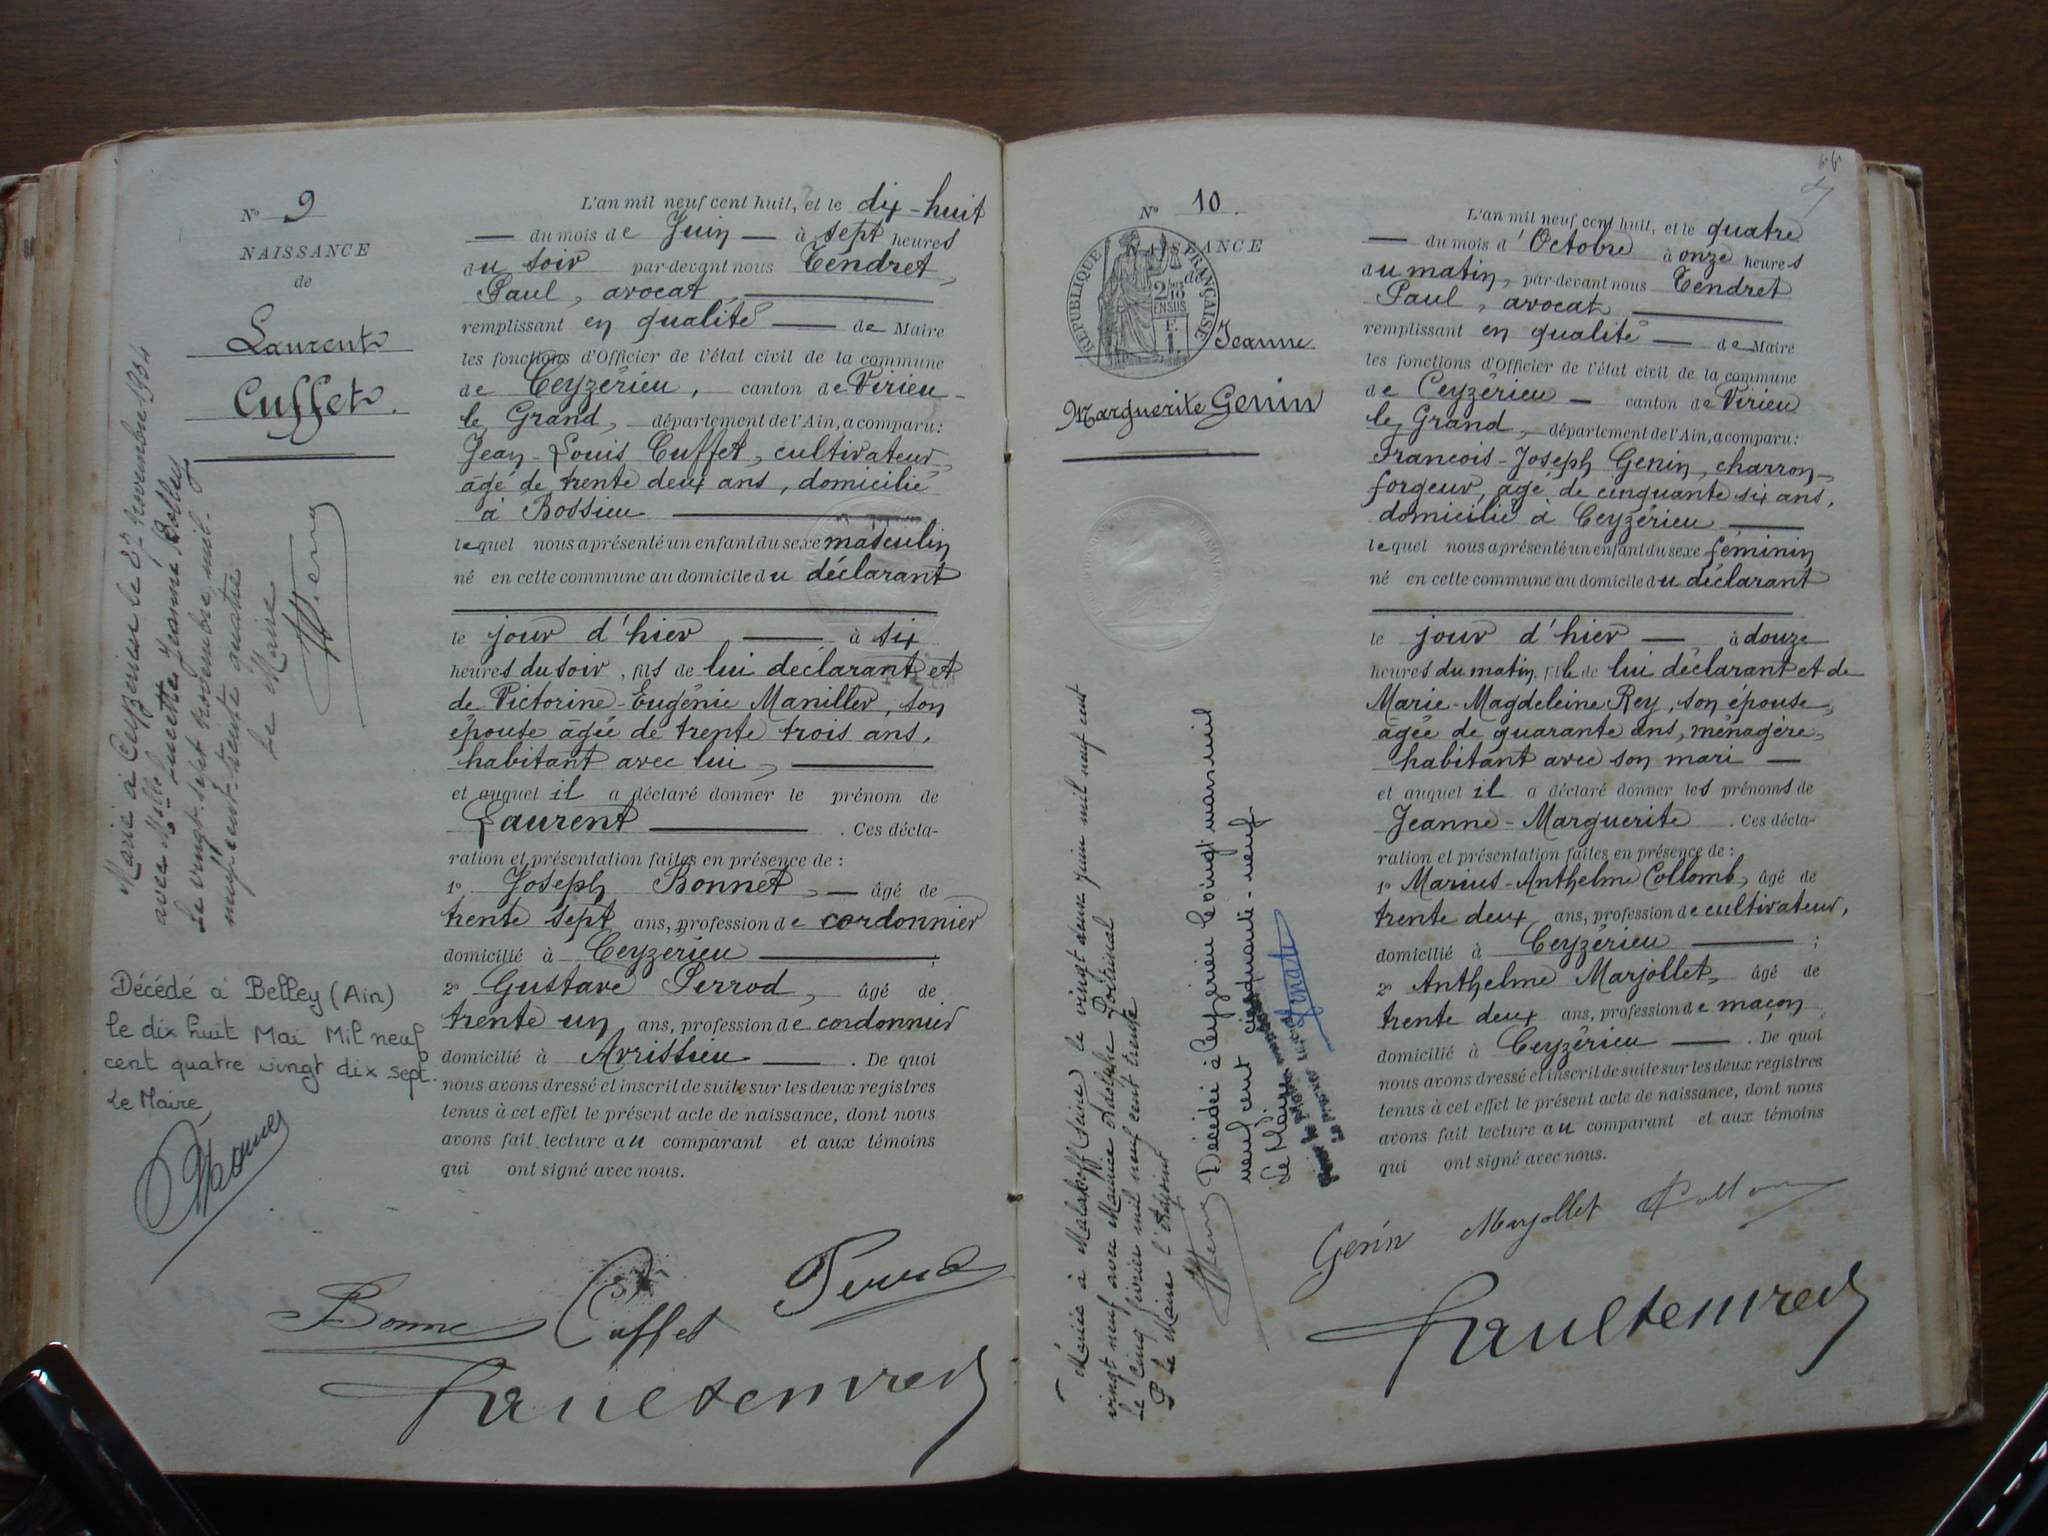 N° 9
NAISSANCE
de
Laurent
Cuffet.
Marié à Ceyzérieu le 27 novembre 1934
avec Melle Lucette Jeanne Bolley
Le vingt-sept novembre mil
neuf cent trente quatre
Le Maire
Décédé à Belley (Ain)
le dix huit Mai Mil neuf
cent quatre vingt dix sept.
Le Maire,
L'an mil neuf cent huit, et le dix-huit
du mois de Juin à sept heures
du soir par-devant nous Tendret,
Paul, avocat,
remplissant en qualité de Maire
les fonctions d'Officier de l'état civil de la commune
de Ceyzérieu, canton de Virieu-
le Grand, département de l'Ain, a comparu:
Jean-Louis Cuffet, cultivateur,
âgé de trente deux ans, domicilié
à Bossieu
lequel nous a présenté un enfant du sexe masculin
né en cette commune au domicile du déclarant
le jour d'hier à six
heures du soir, fils de lui déclarant et
de Victorine-Eugénie Manillier, son
épouse âgée de trente trois ans,
habitant avec lui,
et auquel il a déclaré donner le prénom de
Laurent . Ces décla-
ration et présentation faites en présence de :
1° Joseph Bonnet, âgé de
trente sept ans, profession de cordonnier
domicilié à Ceyzérieu ;
2° Gustave Perrod, âgé de
trente un ans, profession de cordonnier
domicilié à Avrissieu . De quoi
nous avons dressé et inscrit de suite sur les deux registres
tenus à cet effet le présent acte de naissance, dont nous
avons fait lecture au comparant et aux témoins
qui ont signé avec nous.
Bonnet Cuffet Perrod
Paul Tendret
N° 10.
NAISSANCE
de
RÉPUBLIQUE FRANÇAISE
Jeanne
Marguerite Genin
Mariée à Malakoff (Seine) le vingt deux juin mil neuf cent
vingt neuf avec Maurice Adolphe
Le cinq février mil neuf cent trente
P le Maire l'Adjoint
Décédée à Ceyzérieu le vingt mars mil
neuf cent cinquante-neuf
Le Maire
L'an mil neuf cent huit, et le quatre
du mois d'Octobre à onze heures
du matin, par-devant nous Tendret
Paul, avocat
remplissant en qualité de Maire
les fonctions d'Officier de l'état civil de la commune
de Ceyzérieu canton de Virieu
le Grand, département de l'Ain, a comparu:
Francois-Joseph Genin, charron-
forgeur, âgé de cinquante six ans,
domicilié à Ceyzérieu
lequel nous a présenté un enfant du sexe féminin
né en cette commune au domicile du déclarant
le jour d'hier à douze
heures du matin, fille de lui déclarant et de
Marie-Magdeleine Rey, son épouse,
âgée de quarante ans, ménagère,
habitant avec son mari
et auquel il a déclaré donner les prénoms de
Jeanne-Marguerite . Ces décla-
ration et présentation faites en présence de :
1° Marius-Anthelme Collomb, âgé de
trente deux ans, profession de cultivateur,
domicilié à Ceyzérieu ;
2° Anthelme Marjollet, âgé de
trente deux ans, profession de maçon
domicilié à Ceyzérieu . De quoi
nous avons dressé et inscrit de suite sur les deux registres
tenus à cet effet le présent acte de naissance, dont nous
avons fait lecture au comparant et aux témoins
qui ont signé avec nous.
Genin Marjollet Collomb
Paul Tendret